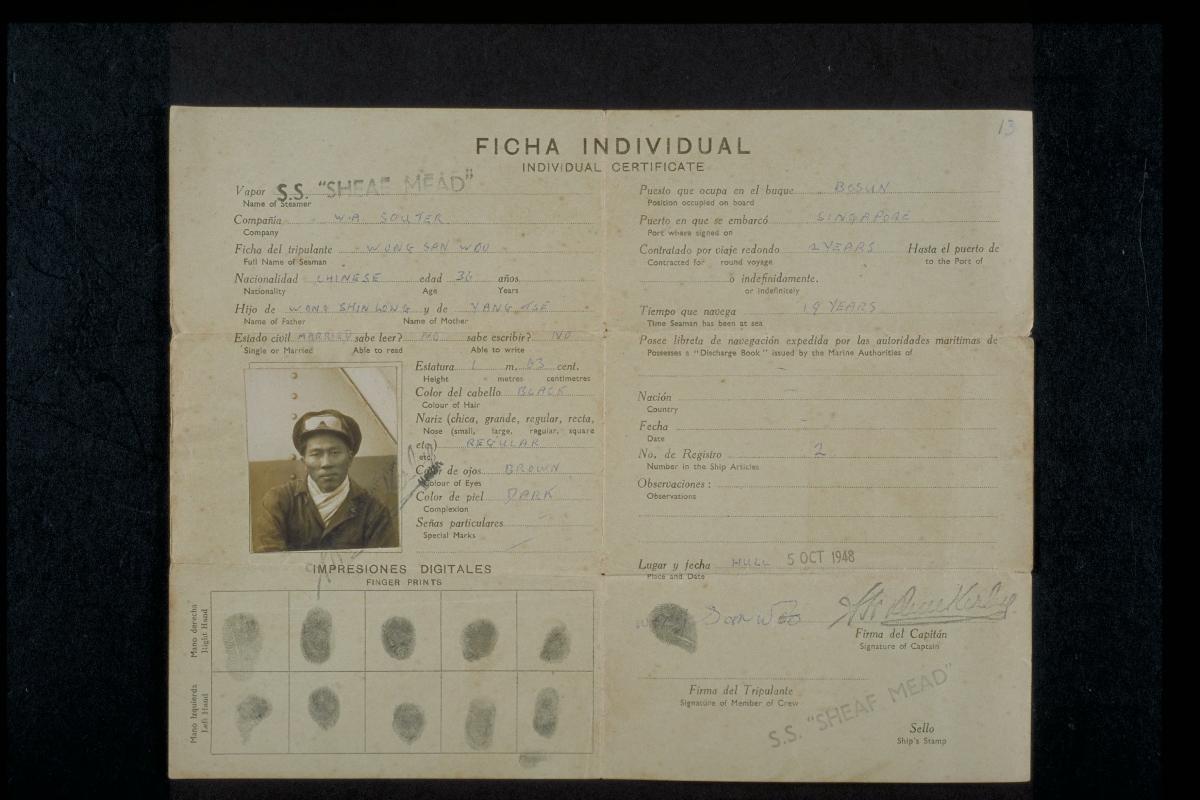 13
FICHA INDIVIDUAL
INDIVIDUAL CERTIFICATE
Vapor S.S. "SHEAF MEAD"
Name of Steamer
Compañia W.A SOUTER
Company
Ficha del tripulante WONG SAN WOO
Full Name of Seaman
Nacionalidad CHINESE edad 36 años
Nationality Age Years
Hijo de WONG SHIN LONG y de YANG TSE
Name of Father Name of Mother
Estado civil MARRIED sabe leer? NO sabe escribir? NO
Single or Married Able to read Able to write
Estatura 1 m. 63 cent.
Height metres centimetres
Color del cabello BLACK
Colour of Hair
Nariz (chica, grande, regular, recta,
Nose (small, large, regular, square
etc.) REGULAR
etc.)
Color de ojos BROWN
Colour of Eyes
Color de piel DARK
Complexion
Señas particulares
Special Marks
IMPRESIONES DIGITALES
FINGER PRINTS
Mano derecha
Right Hand
Mano Izquierda
Left Hand
Puesto que ocupa en el buque BOSUN
Position occupied on board
Puerto en que se embarcó SINGAPORE
Port where signed on
Contratado por viaje redondo 2 YEARS Hasta el puerto de
Contracted for round voyage to the Port of
ó indefinidamente.
or Indefinitely
Tiempo que navega 19 YEARS
Time Seaman has been at sea
Posee libreta de navegación expedida por las autoridades maritimas de
Possesses a "Discharge Book" issued by the Marine Authorities of
Nación
Country
Fecha
Date
No. de Registro 2
Number in the Ship Articles
Observaciones :
Observations
Lugar y fecha HULL 5 OCT 1948
Place and Date
Wong San Woo
Firma del Capitán
Signature of Captain
Firma del Tripulante
Signature of Member of Crew
S.S. "SHEAF MEAD"
Sello
Ship's Stamp